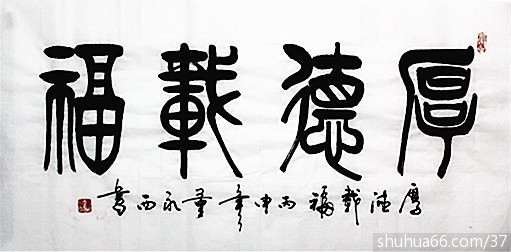 厚德載福
厚德載福丙申年董永西書
shuhua66.com/37